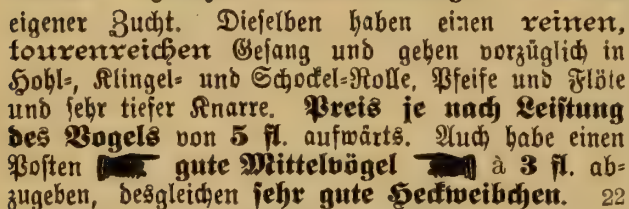 eigener Zucht. Dieselben haben einen reinen,
tourenreichen Gesang und gehen vorzüglich in
Hohl=, Klingel= und Schockel=Rolle, Pfeife und Flöte
und sehr tiefer Knarre. Preis je nach Leistung
des Vogels von 5 fl. aufwärts. Auch habe einen
Posten ☛ gute Mittelvögel ☚ à 3 fl. ab=
zugeben, desgleichen sehr gute Heckweibchen. 22